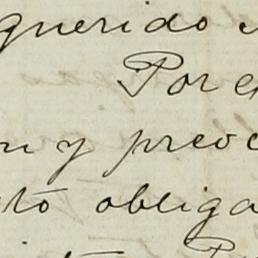 querido
Por e
n y preoc
tó obliga